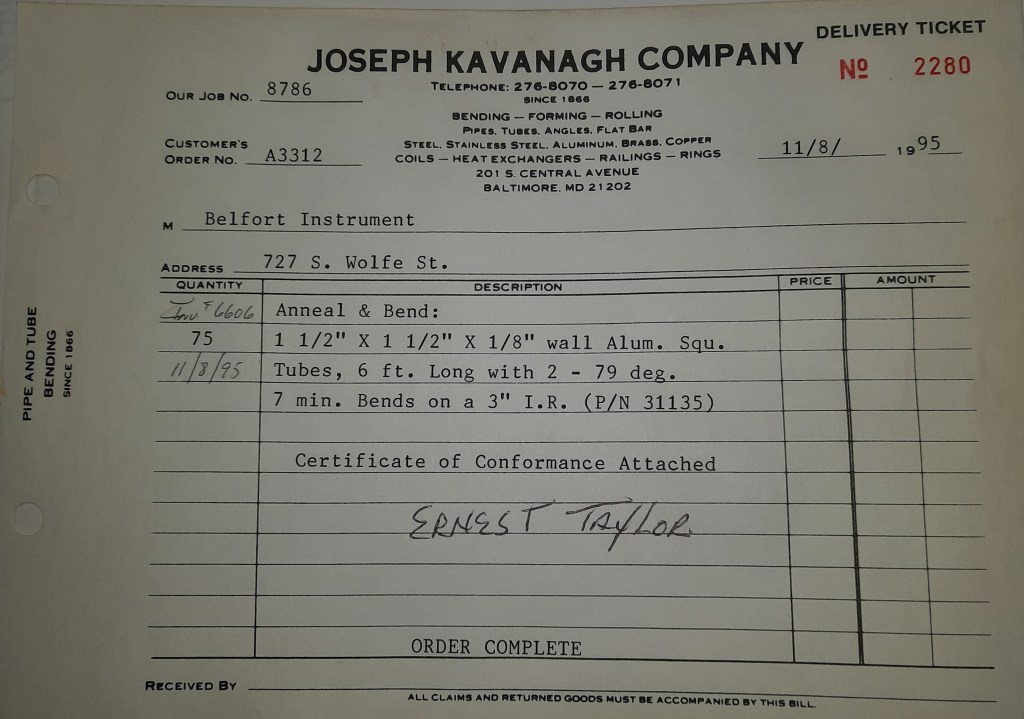 DELIVERY TICKET
JOSEPH KAVANAGH COMPANY
No 2280
TELEPHONE: 276-8070 — 276-8071
SINCE 1866
OUR JOB NO. 8786
BENDING — FORMING — ROLLING
PIPES, TUBES, ANGLES, FLAT BAR
STEEL, STAINLESS STEEL, ALUMINUM, BRASS, COPPER
COILS — HEAT EXCHANGERS — RAILINGS — RINGS
201 S. CENTRAL AVENUE
BALTIMORE, MD 21202
CUSTOMER'S
ORDER NO. A3312
11/8/ 1995
M Belfort Instrument
ADDRESS 727 S. Wolfe St.
QUANTITY DESCRIPTION PRICE AMOUNT
Inv # 6606 Anneal & Bend:
75 1 1/2" X 1 1/2" X 1/8" wall Alum. Squ.
11/8/95 Tubes, 6 ft. Long with 2 - 79 deg.
7 min. Bends on a 3" I.R. (P/N 31135)
Certificate of Conformance Attached
ERNEST TAYLOR
ORDER COMPLETE
RECEIVED BY
ALL CLAIMS AND RETURNED GOODS MUST BE ACCOMPANIED BY THIS BILL
PIPE AND TUBE
BENDING
SINCE 1866